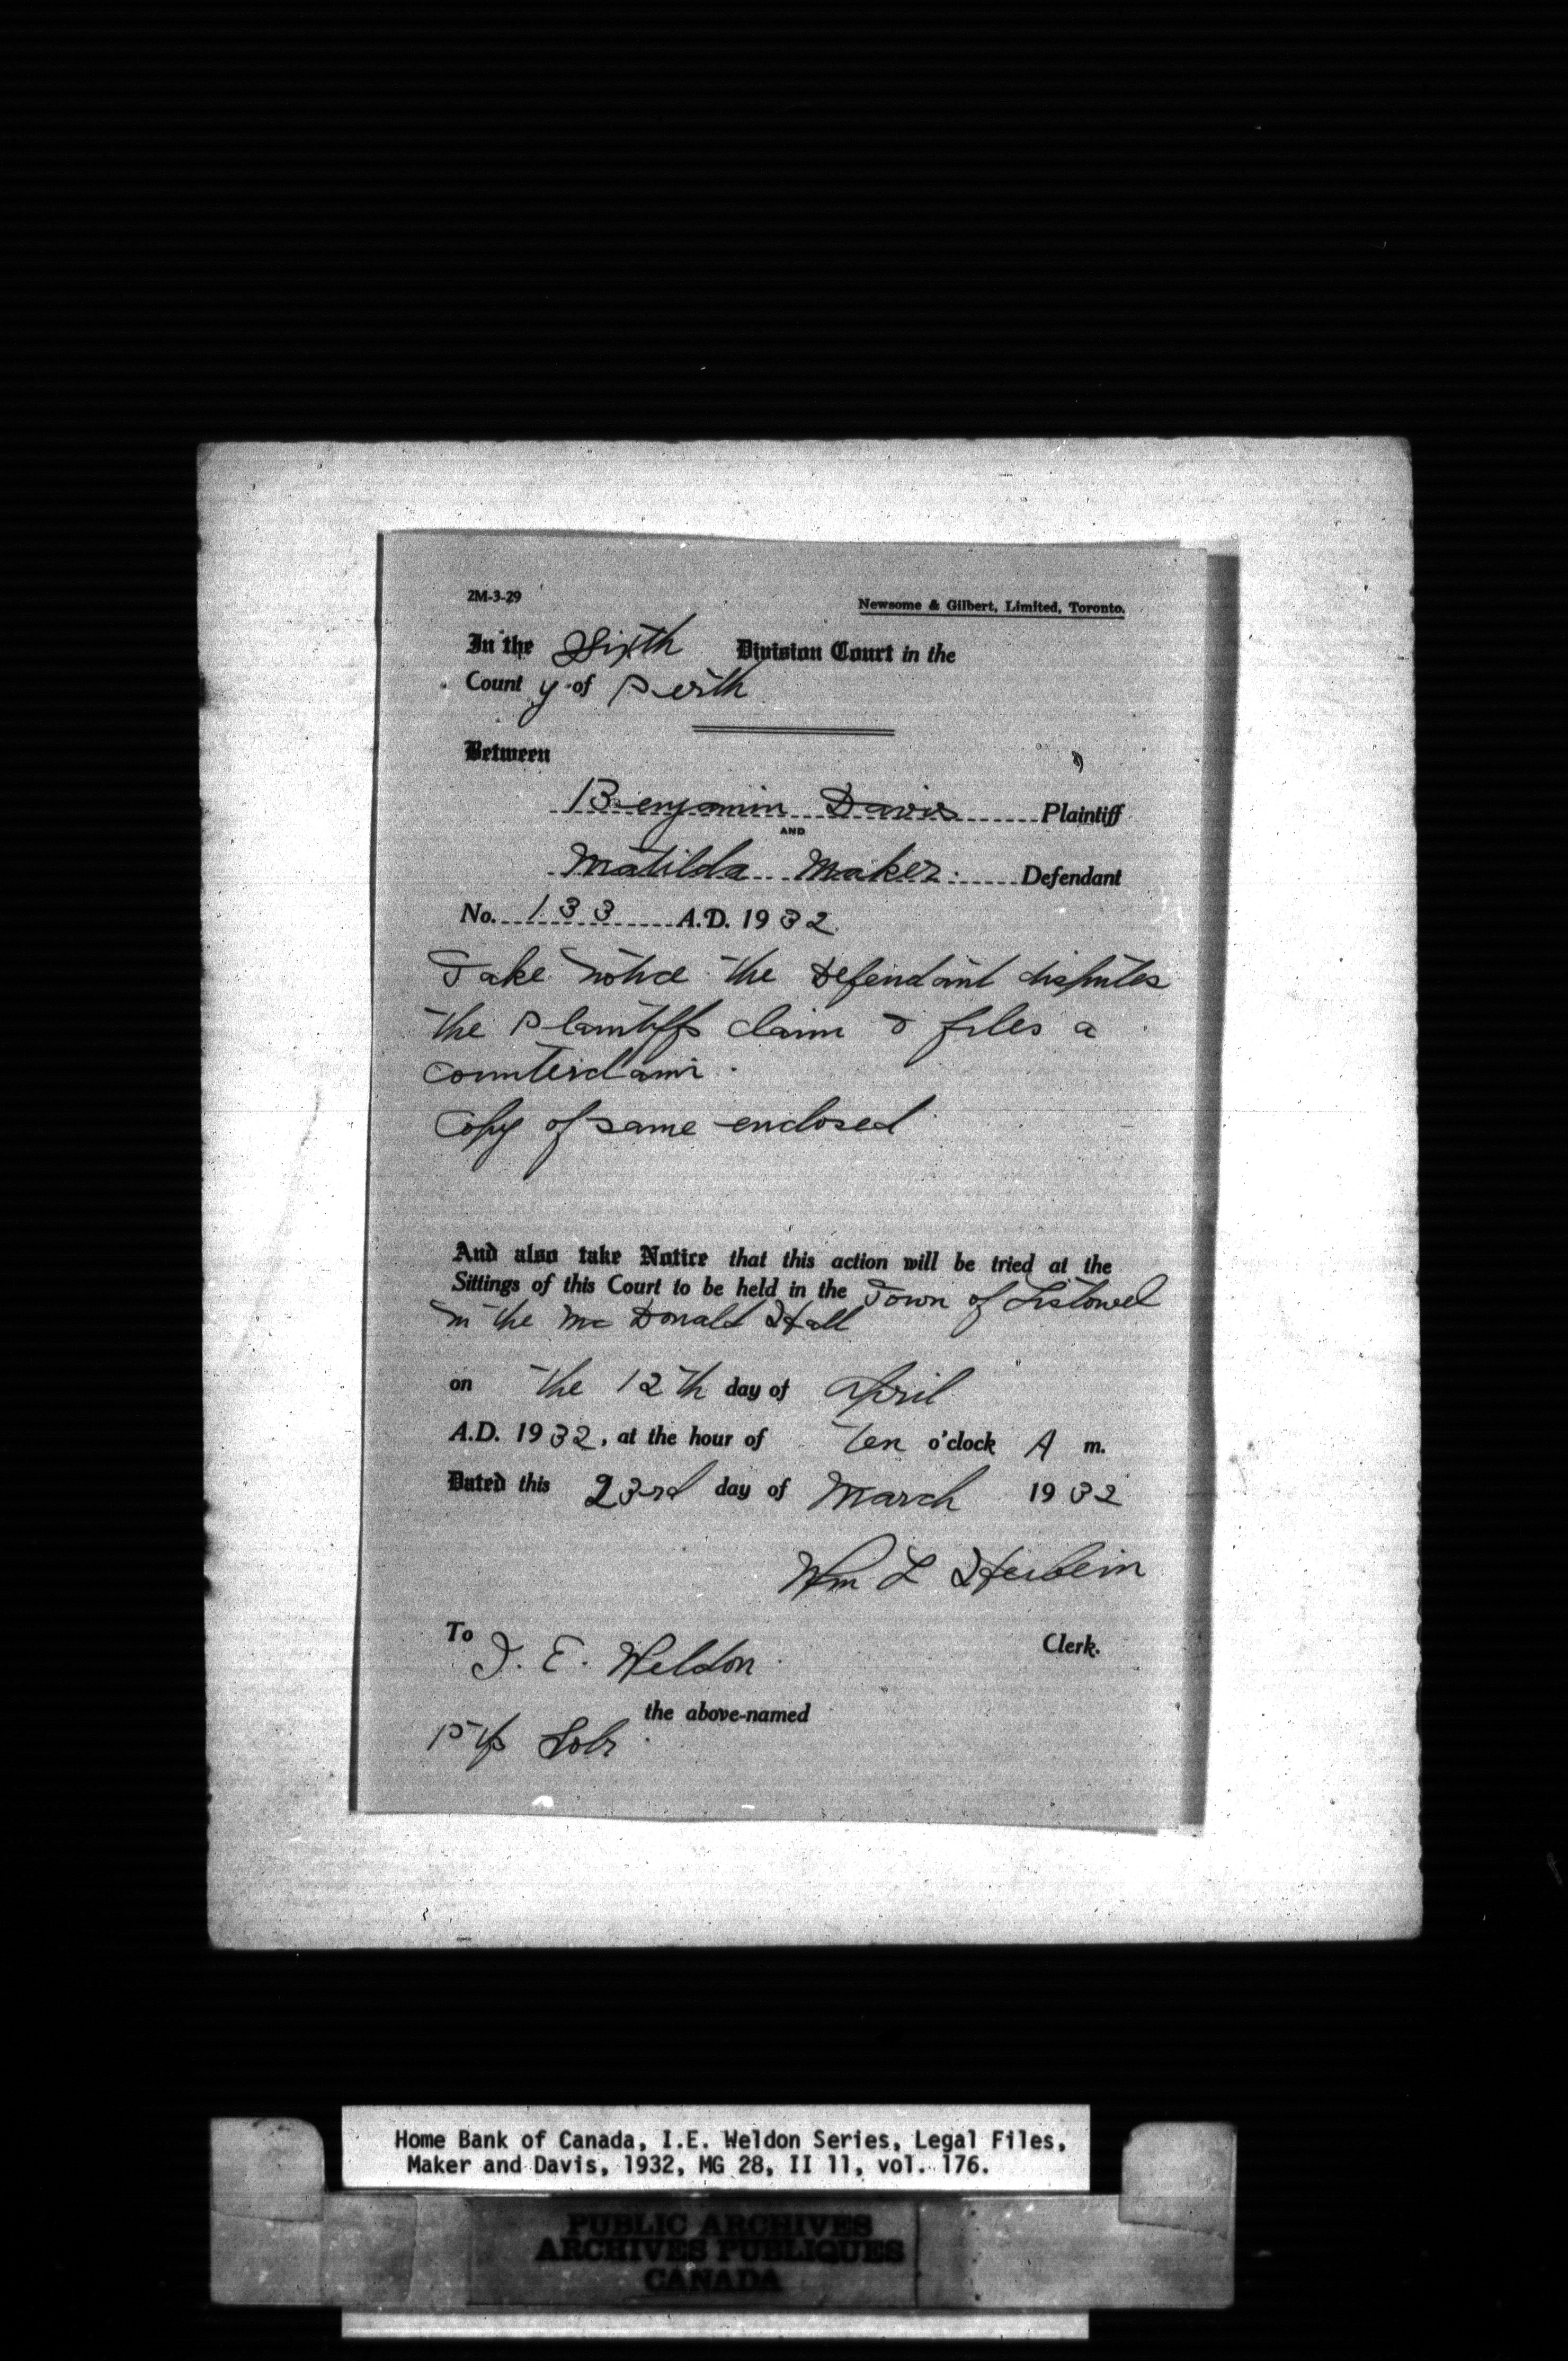 2M-3-29
Newsome & Gilbert, Limited, Toronto.
In the Sixth Division Court in the
County of Perth
Between
Benjamin Davis Plaintiff
AND
Matilda Maker. Defendant
No. 133 A.D. 1932
Take notice the Defendant disputes
the Plaintiffs claim & files a
counterclaim.
Copy of same enclosed
And also take Notice that this action will be tried at the
Sittings of this Court to be held in the Town of Listowel
in the McDonald Hall
on the 12th day of April
A.D. 1932, at the hour of Ten o'clock A m.
Dated this 23rd day of March 1932
Wm L
Clerk.
To I. E. Weldon
the above-named
Plfs Solr
Home Bank of Canada, I.E. Weldon Series, Legal Files,
Maker and Davis, 1932, MG 28, II 11, vol. 176.
PUBLIC ARCHIVES
ARCHIVES PUBLIQUES
CANADA